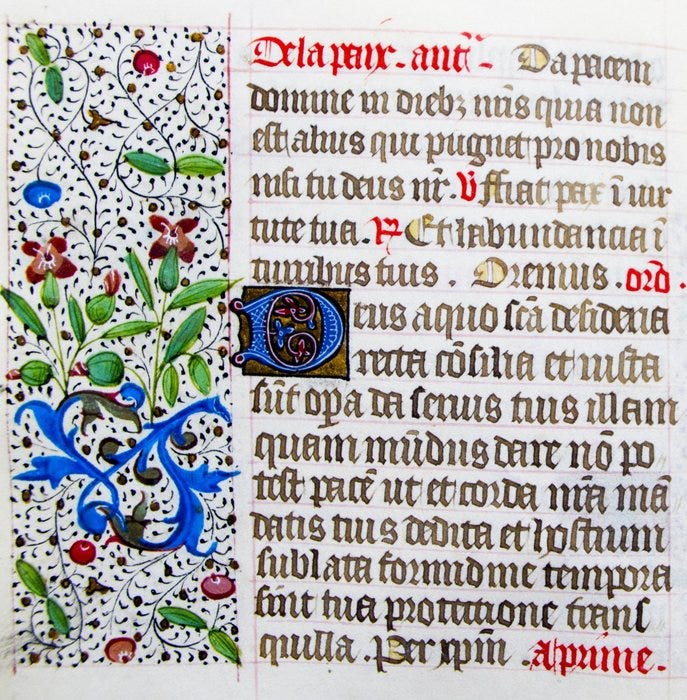 De la paix. antˉ. Da pacem
domine in diebꝫ nr̄is quia non
est alius qui pugnet pro nobis
nisi tu deus nr̄. V̸ Fiat pax ī uir
tute tua. R̸ Et habundancia ī
turribus tuis. Oremus. orō.
Deus a quo sc̄a desideria
recta cōsilia et iusta
sūt oꝑa da seruis tuis illam
quam mūdus dare nō po
test pacē ut et corda nr̄a mā
datis tuis dedita et hostium
sublata formidine tempora
sint tua protectione trans
quilla. Per xp̄m. a prime.